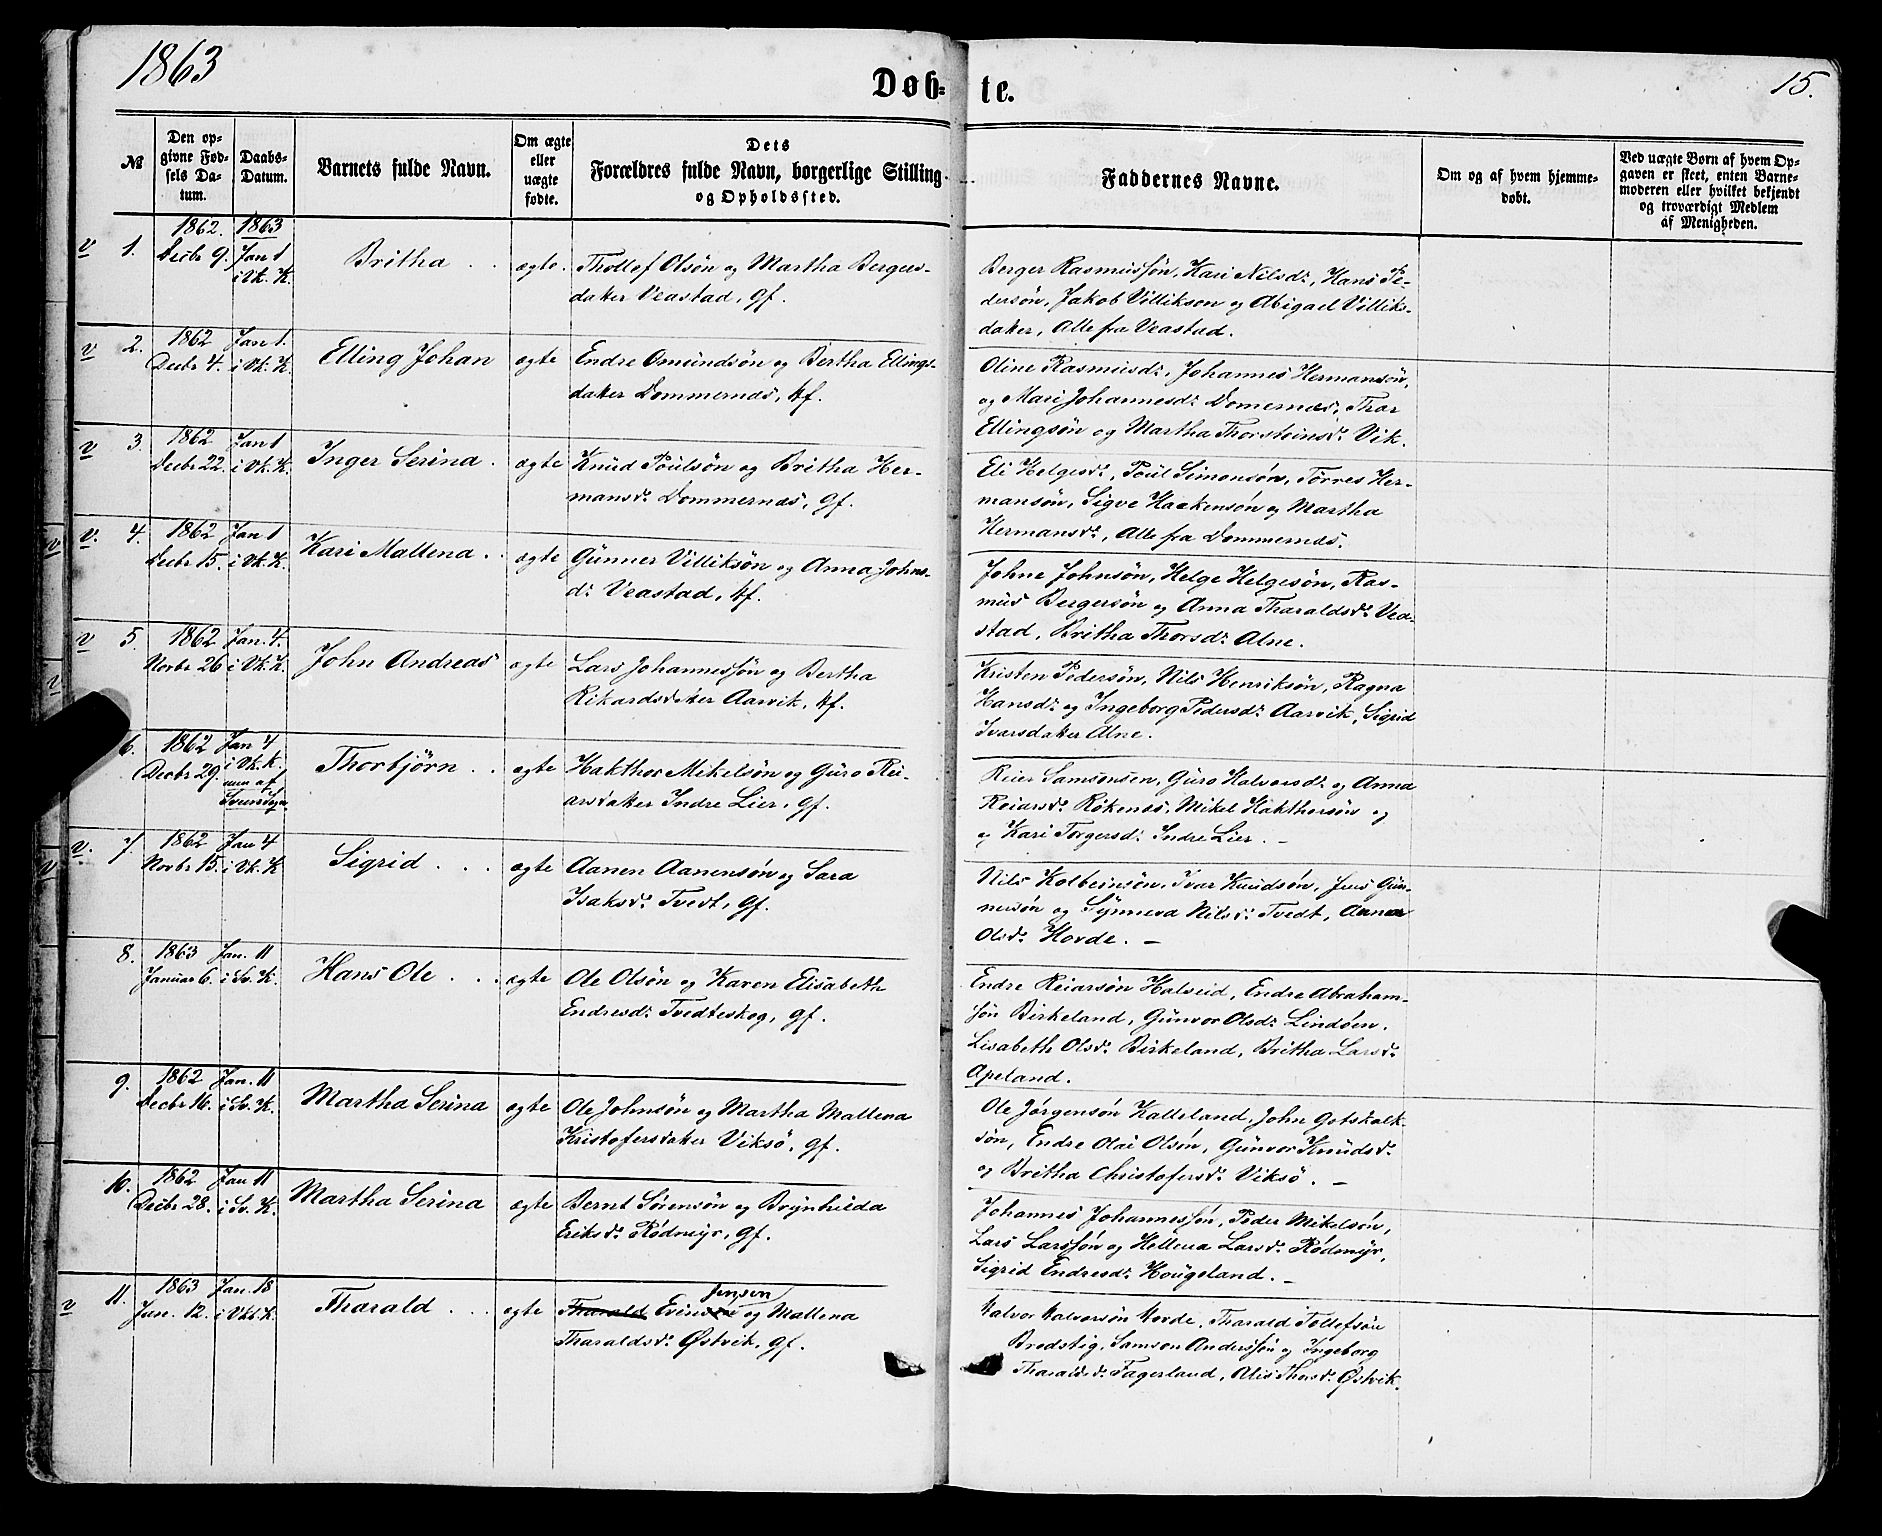 1863
Døb-
te.
15.
№
Den op-
givne Fød-
sels Da-
tum.
Daabs-
Datum.
Barnets fulde Navn.
Om ægte
eller
uægte
fødte.
Dets
Forældres fulde Navn, borgerlige Stilling
og Opholdssted.
Faddernes Navne.
Om og af hvem hjemme-
døbt.
Ved uægte Børn af hvem Op-
gaven er skeet, enten Barne-
moderen eller hvilket bekjendt
og troværdigt Medlem
af Menigheden.
v 1.
1862.
Decbr 9.
1863
Jan 1
i Vk. K.
Britha
ægte.
Thollef Olsön og Martha Bergers-
datter Veastad, gf.
Berger Rasmussön, Kari Nilsdr, Hans Pe-
dersön, Jakob Villikson og Abigael Villiks-
datter, Alle fra Veastad.
v 2.
1862
Decbr 4.
Jan 1.
i Vk. K.
Elling Johan
ægte
Endre Omundsön og Bertha Ellings-
datter Dommernes, kf.
Oline Rasmusdr, Johannes Hermansön,
og Mari Johannesdr Domernes, Thor
Ellingsön og Martha Thorsteinsdr Vik.
v 3.
1862
Decbr 22.
Jan 1
i Vk. K.
Inger Serina
ægte
Knud Poulsön og Britha Her-
mansdr Dommernes, gf.
Eli Helgesdr, Poul Simonsön, Törres Her-
mansön, Sigve Haakensön og Martha
Hermansdr, Alle fra Dommernes.
v. 4.
1862
Decbr 15.
Jan 1
i Vk. K.
Kari Mallena
ægte
Gunner Villiksön og Anna Johns-
dr Veastad, kf.
Johne Johnsön, Helge Helgesön, Ras-
mus Bergersön og Anna Tharaldsdr Vea-
stad, Britha Thorsdr Alne.
v 5.
1862
Novbr 26
Jan. 4.
i Vk. K.
John Andreas
ægte
Lars Johannessön og Bertha
Rikardsdatter Aarvik, kf.
Kristen Pedersön, Nils Henriksön, Ragna
Hansdr og Ingeborg Pedersdr Aarvik, Sigrid
Ivarsdatter Alne.
6.
1862
Decbr 29.
Jan 4
i Vk. K.
Thorbjörn
ægte
Hakthor Mikelsön og Guro Rei-
arsdatter Indre Lier, gf.
Reier Samsonsen, Guro Halvorsdr og Anna
Reiarsdr Rökenes, Mikel Hakthorsön og
og Kari Torgersdr Indre Lier. -
v. 7.
1862
Novbr 15.
Jan 4
i Vk. K
Sigrid
ægte
Aanen Aanensön og Sara
Isaksdr Tvedt, gf.
Nils Kolbeinsön, Ivar Knudsön, Jens Gun-
nersön og Synneva Nilsdr Tvedt, Anna
Olsdr Hovde. -
8.
1863
Januar 6.
Jan. 11
i Sv. K.
Hans Ole
ægte
Ole Olsön og Karen Elisabeth
Endresdr Tvedteskog, gf.
Endre Reiarsön Halseid, Endre Abraham-
sön Birkeland, Gunvor Olsdr Lindöen.
Lisabeth Olsdr Birkeland, Britha Larsdr
Apeland.
9.
1862
Decbr 16.
Jan. 11
i Sv. K.
Martha Serina
ægte
Ole Johnsön og Martha Mallena
Kristofersdatter Viksö, gf.
Ole Jörgensön Kalleland, John Gotskalk-
sön, Endre Olai Olsön, Gunvor Knudsdr
og Britha Christofersdr Viksö. -
10.
1862
Decbr 28.
Jan 11
i Sv. K.
Martha Serina
ægte
Bernt Sörensön og Brynhilda
Eriksdr Rödmyr, gf.
Johannes Johannessön, Peder Mikelsön,
Lars Larssön og Hellena Larsdr Rödmyr,
Sigrid Endresdr Hougeland. -
v 11.
1863
Jan. 12.
Jan. 18
i Vkl. K.
Tharald
ægte
Jensen
Tharald og Mallena
Tharaldsdr Østvik, gf.
Halvor Halvorsön Hovde, Tharald Tollefsön
Brodstig, Samson Anderssön og Ingeborg
Tharaldsdr Fagerland, Alis Thorsdr Østvik.